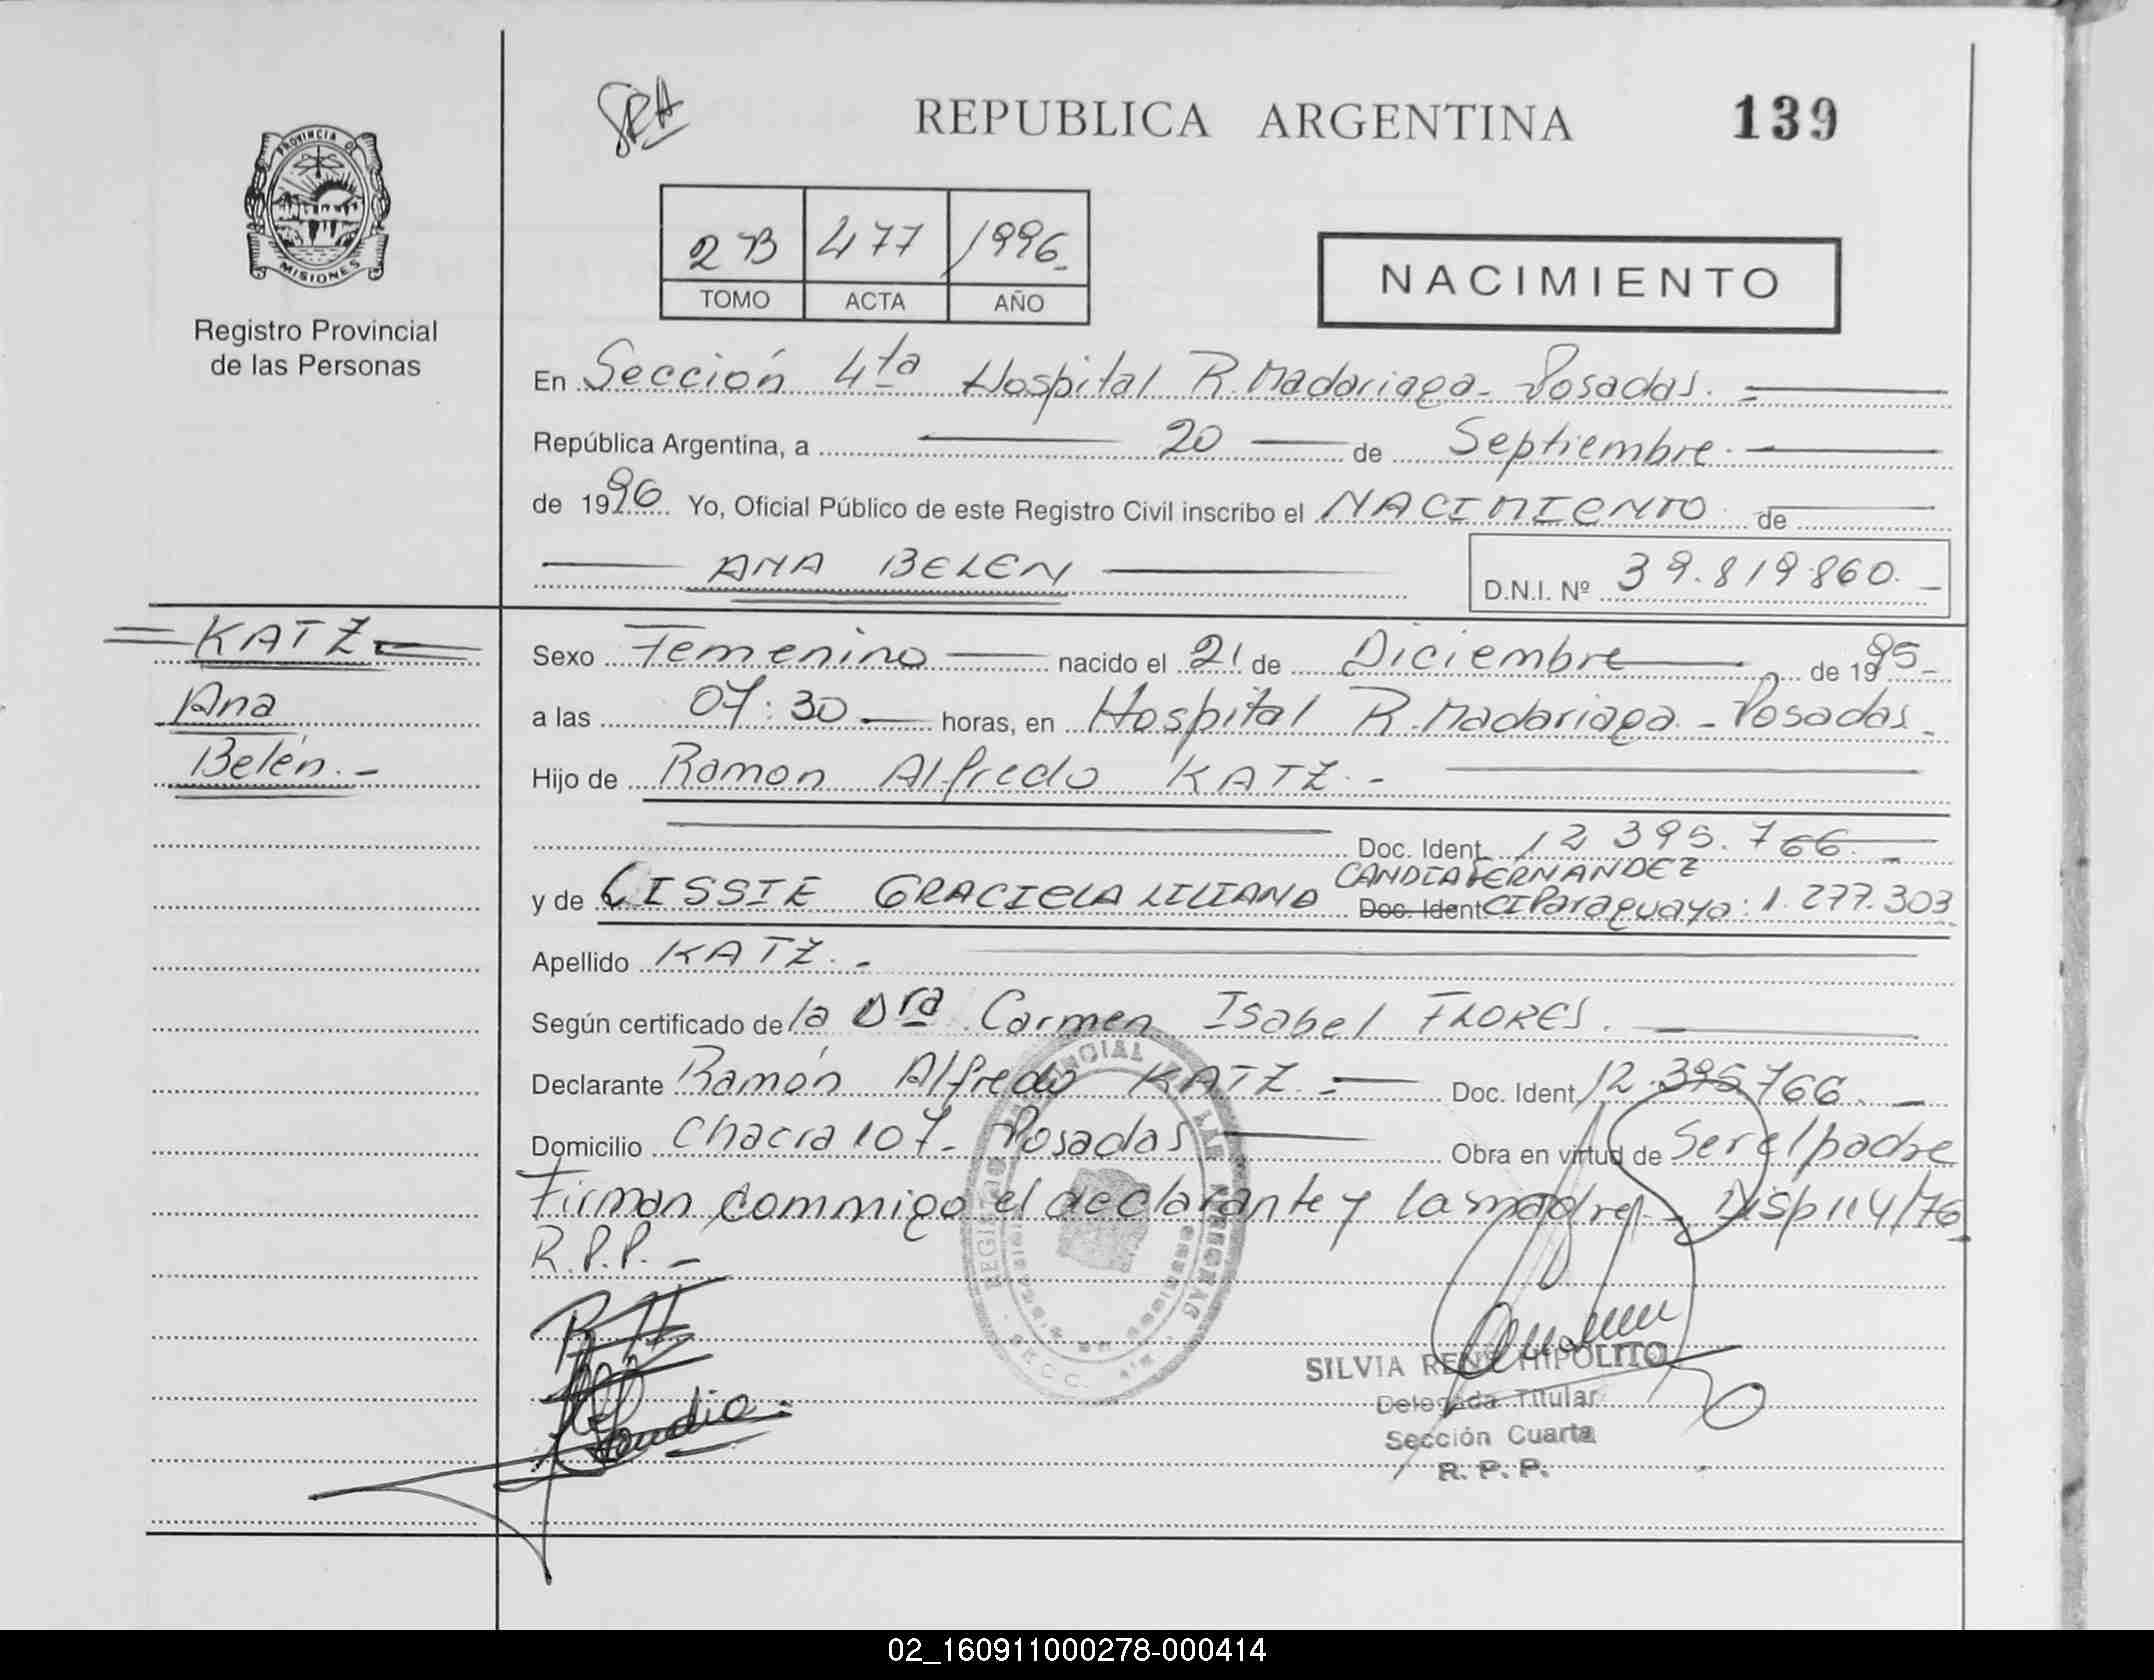 SRA
REPUBLICA ARGENTINA
139
PROVINCIA DE
MISIONES
Registro Provincial
de las Personas
2B 477 1996
TOMO ACTA AÑO
NACIMIENTO
En Sección 4ta Hospital R. Madariaga - Posadas.
República Argentina, a 20 de Septiembre
de 1996. Yo, Oficial Público de este Registro Civil inscribo el NACIMIENTO de
ANA BELEN
D.N.I. Nº 39.819.860.
KATZ
Ana
Belén.
Sexo Femenino nacido el 21 de Diciembre de 1995
a las 07:30 horas, en Hospital R. Madariaga - Posadas
Hijo de Ramon Alfredo KATZ.
Doc. Ident. 12.395.766.
CANDIA FERNANDEZ
y de LISSIE GRACIELA LILIANA Doc. Ident CI Paraguaya: 1.277.303
Apellido KATZ.
Según certificado de la Dra Carmen Isabel FLORES.
Declarante Ramón Alfredo KATZ. Doc. Ident. 12.395.766.
Domicilio Chacra 107 - Posadas Obra en virtud de Ser el padre
Firman commigo el declarante y la madre - Disp 114/76
R.P.P.
REGISTRO PROVINCIAL DE LAS PERSONAS
SILVIA RENE HIPOLITO
Delegada Titular
Sección Cuarta
R. P. P.
02_160911000278-000414